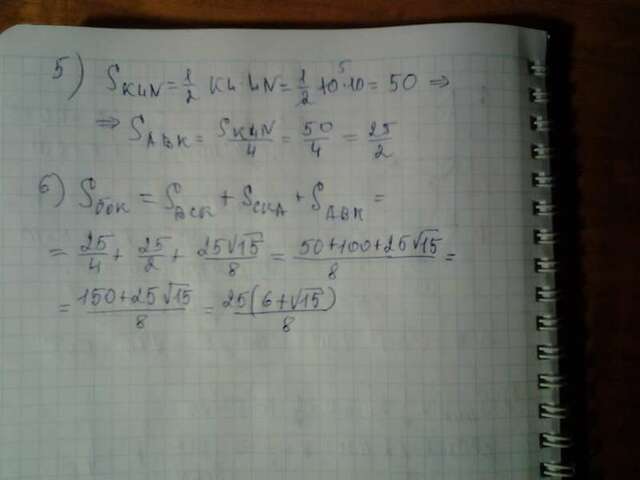 5) S_KLN = 1/2 KL·LN = 1/2 10·10 = 50 ⇒
⇒ S_ABK = S_KLN/4 = 50/4 = 25/2
6) S_бок = S_BCK + S_CKA + S_ABK =
= 25/4 + 25/2 + 25√15/8 = (50+100+25√15)/8 =
= (150+25√15)/8 = 25(6+√15)/8